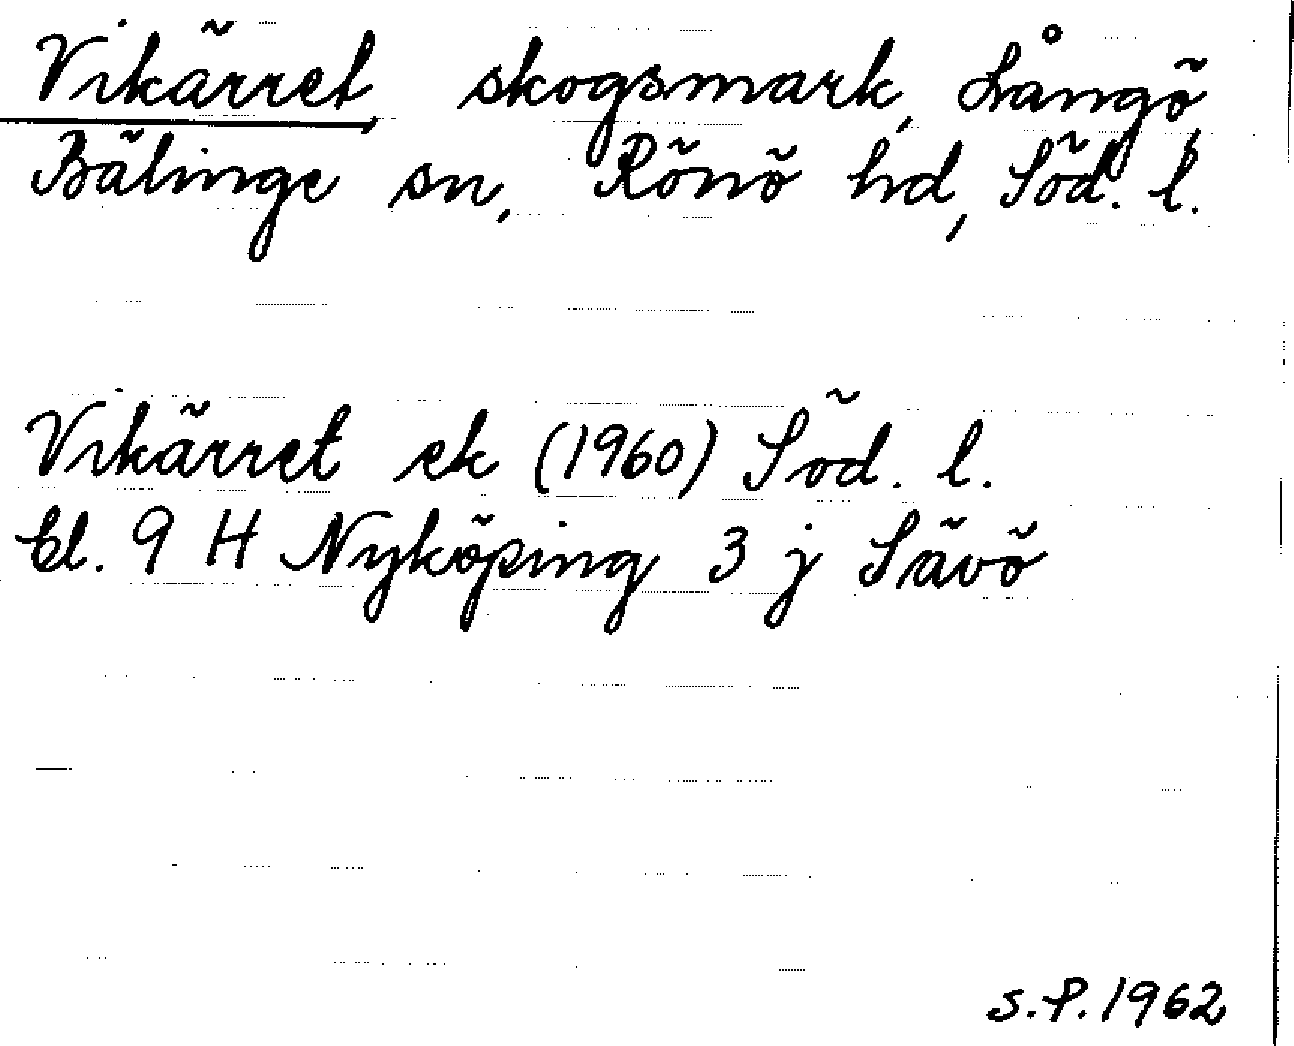 Vikärret skogsmark, Långö,
Bälinge sn, Rönö hd, Söd. l.
Vikärret ek (1960) Söd. l.
bl. 9 H Nyköping 3 j Sävö
S.P. 1962